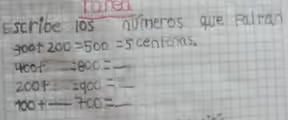 Tarea
Escribe los números que faltan
300+ 200 =500 =5 centenas.
400+ __=800 =__
200+ __=900 =__
100+ __ 700 =__